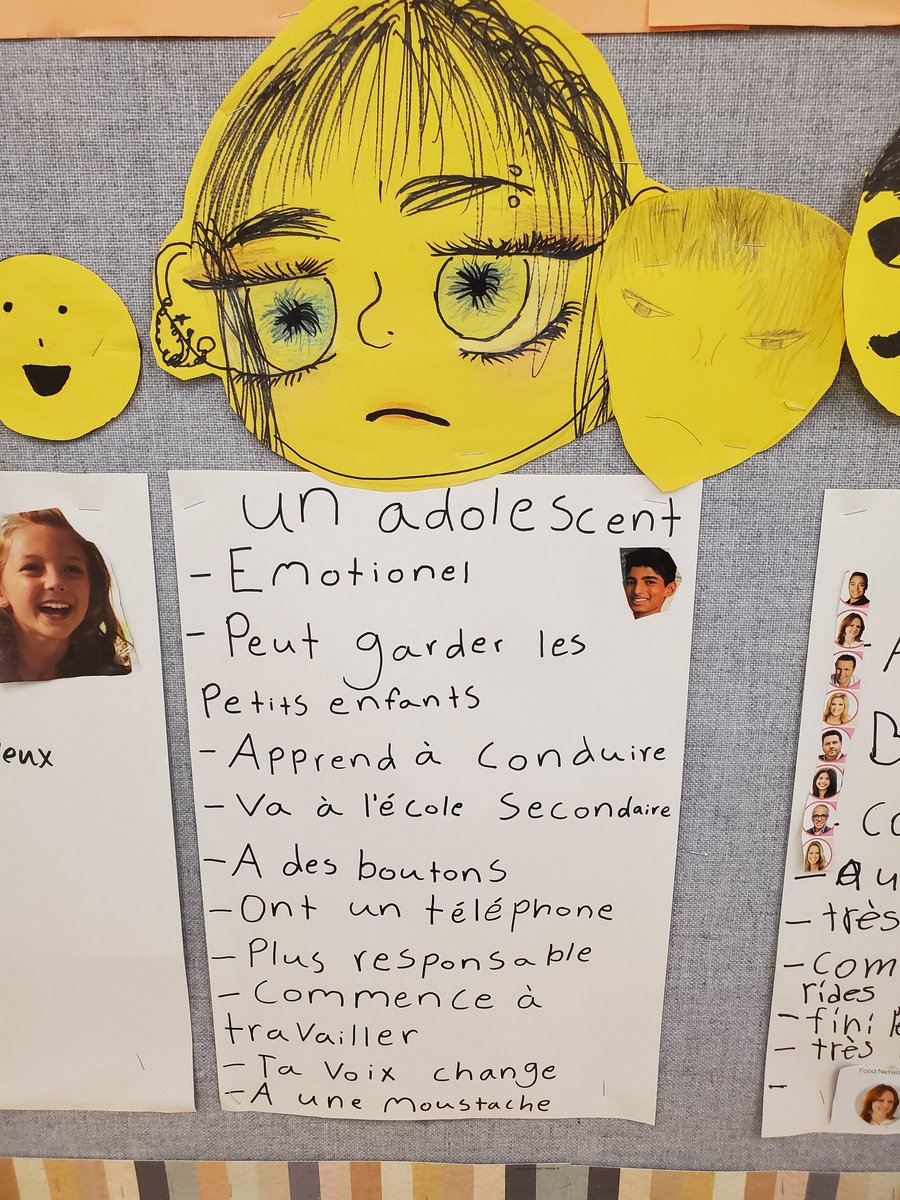 un adolescent
- Emotionel
- Peut garder les
Petits enfants
- Apprend à conduire
- Va à l'école Secondaire
- A des boutons
- Ont un téléphone
- Plus responsable
- Commence à
travailler
- Ta voix change
- A une moustache
- très
- com
rides
- fini
- très